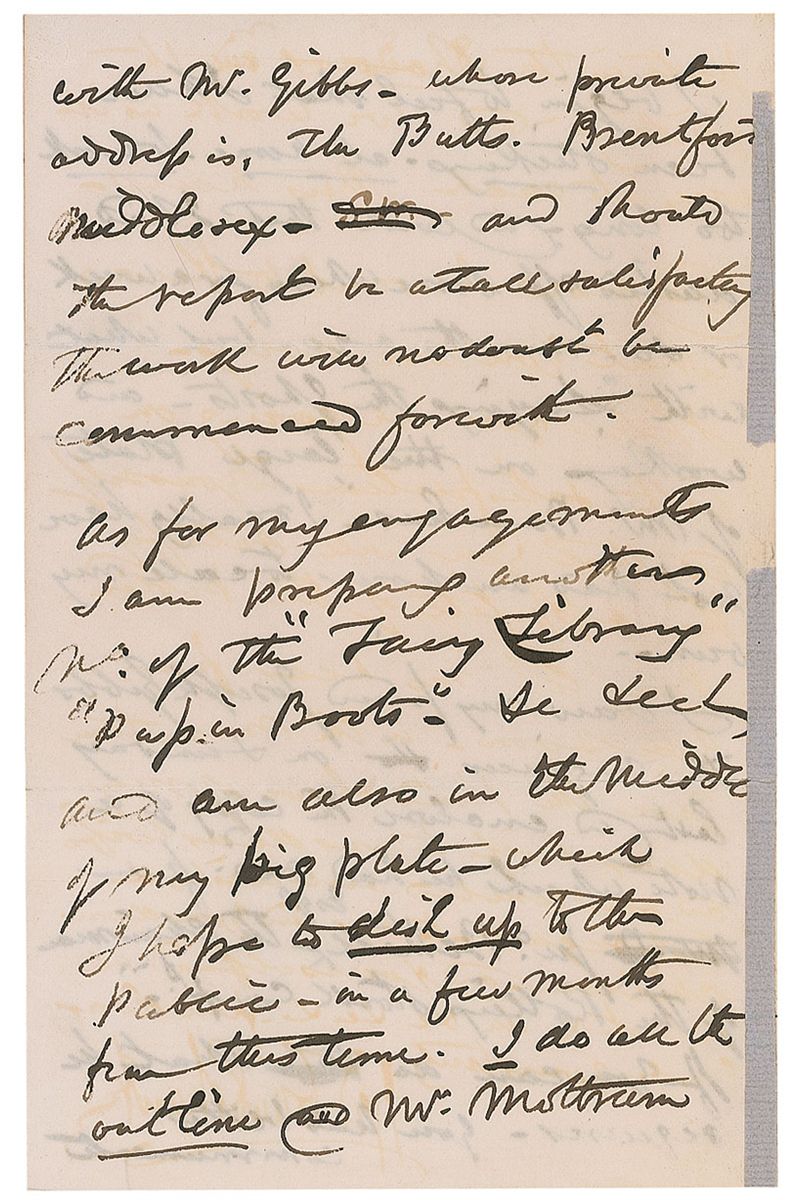 with Mr. Gibbs - whose private
address is, The Butts. Brentford
Middlesex - and should
the report be at all satisfactory
the work will no doubt be
commenced forwith.
As for my engagements
I am preparing another
No. of the "Fairy Library"
"Puss in Boots" -
and am also in the Middle
of my big plate - which
I hope to dish up to the
Public - in a few months
from this time. I do all the
outline and Mr. Mottram